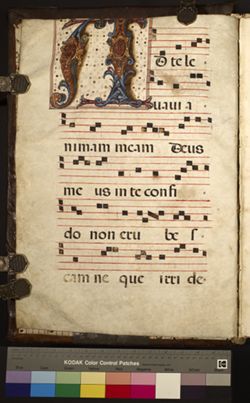 A
D te le
uaui a
nimam meam Deus
me us in te confi
do non eru be s
cam ne que irri de
KODAK Color Control Patches